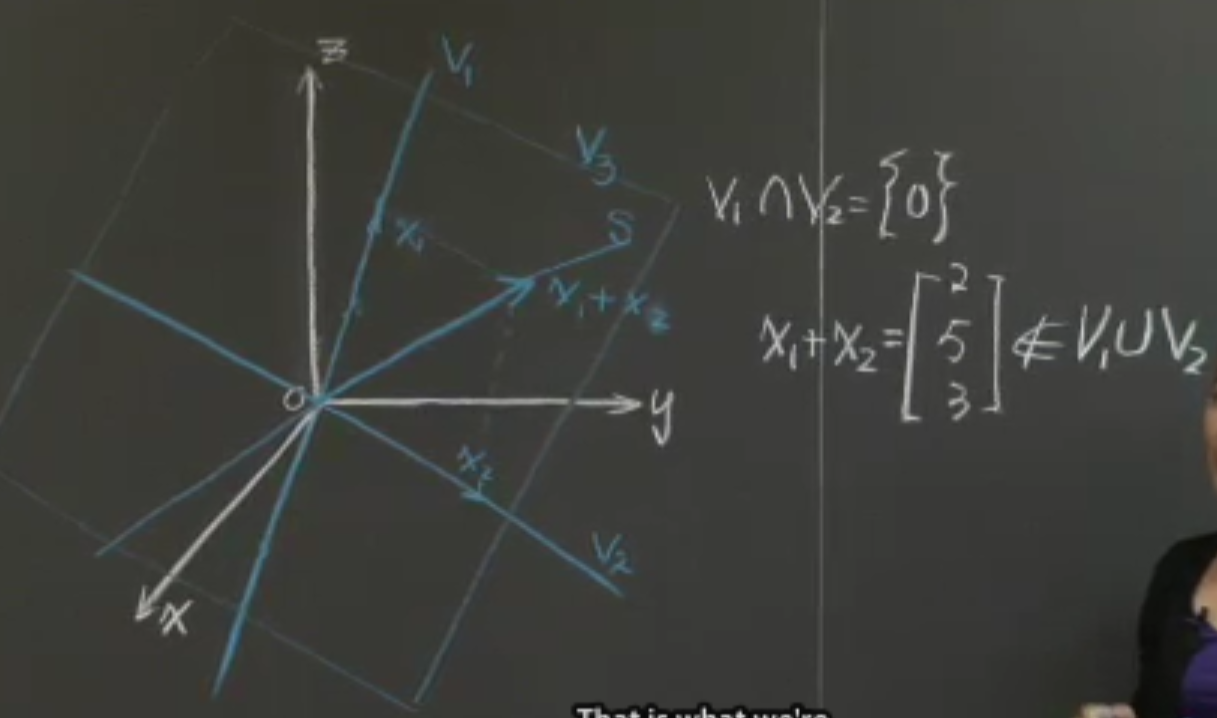 z
V₁
V₃
S
x₁
x₁+x₂
0
y
x₂
V₂
x
V₁ ∩ V₂ = {0}
x₁+x₂ = [2 5 3] ∉ V₁ ∪ V₂
That is what we're